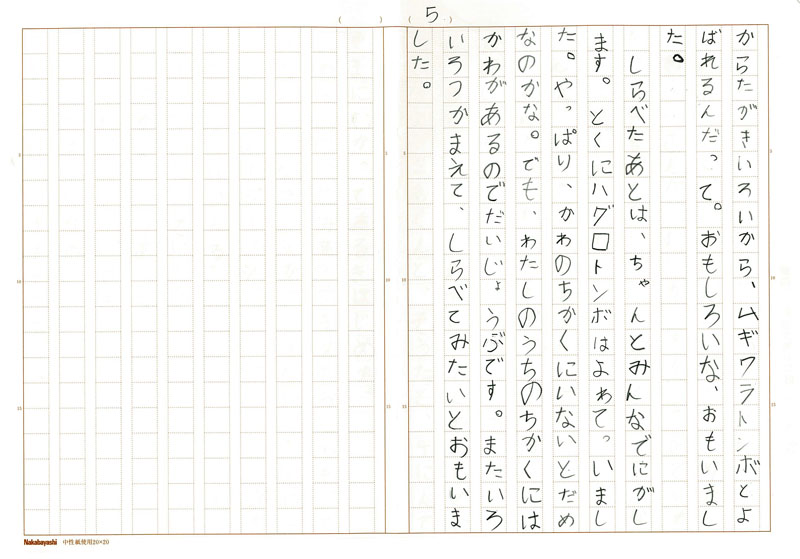 (5.)
からたがきいろいから、ムギワラトンボとよ
ばれるんだって。おもしろいな、おもいまし
た。
しらべたあとは、ちゃんとみんなでにがし
ます。とくにハグロトンボはよわてっいまし
た。やっぱり、かわのちかくにいないとだめ
なのかな。でも、わたしのうちのちかくには
かわがあるのでだいじょうぶです。またいろ
いろつかまえて、しらべてみたいとおもいま
した。
5
10
15
5
10
15
Nakabayashi 中性紙使用20×20